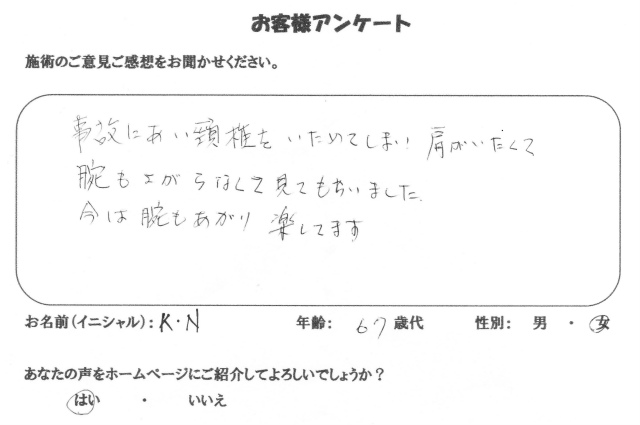 お客様アンケート
施術のご意見ご感想をお聞かせください。
事故にあい頸椎をいためてしまい 肩がいたくて
腕も上がらなくて見てもらいました。
今は腕もあがり 楽してます
お名前(イニシャル): K・N 年齢: 67 歳代 性別: 男 ・ 女
あなたの声をホームページにご紹介してよろしいでしょうか?
はい ・ いいえ